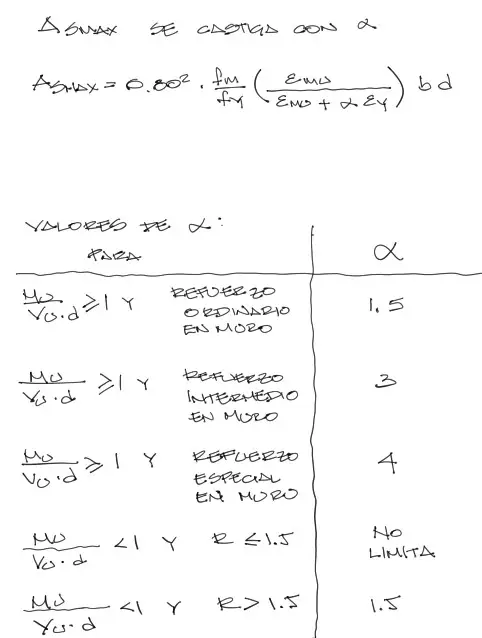 ASMAX SE CASTIGA CON α
ASMAX = 0.80² · fm/fy (εmu / (εmu + α εy)) b d
VALORES DE α:
PARA α
Mu/Vu·d ≥ 1 Y REFUERZO ORDINARIO EN MURO 1.5
Mu/Vu·d ≥ 1 Y REFUERZO INTERMEDIO EN MURO 3
Mu/Vu·d ≥ 1 Y REFUERZO ESPECIAL EN MURO 4
Mu/Vu·d < 1 Y R ≤ 1.5 NO LIMITA
Mu/Vu·d < 1 Y R > 1.5 1.5